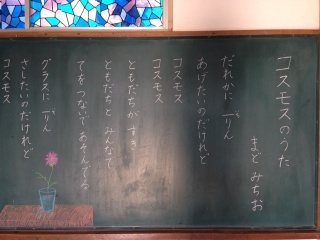 コスモスのうた
まど みちお
だれかに 一りん
あげたいのだけれど
コスモス
コスモス
ともだちが すき
ともだちと みんなで
てを つないで あそんでる
グラスに 一りん
さしたいのだけれど
コスモス